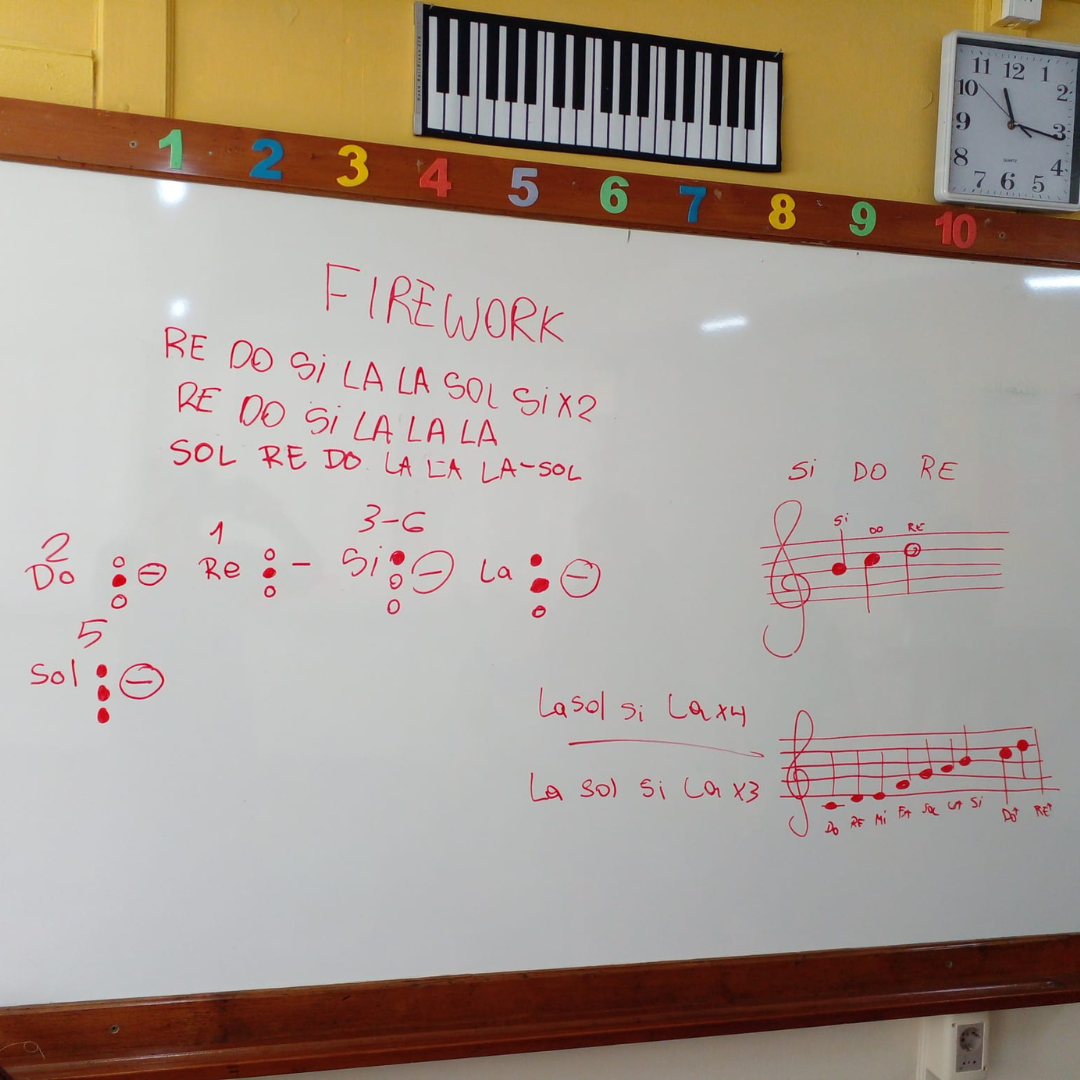 11 12 1
10 2
9 3
8 4
7 6 5
QUARTZ
1 2 3 4 5 6 7 8 9 10
FIREWORK
RE DO Si LA LA SOL Si X2
RE DO Si LA LA LA
SOL RE DO LA LA LA-SOL
2 1 3-6
Do Re Si La
5
Sol
Si DO RE
Si DO RE
La sol si La x4
La sol si La x3
Do RE Mi FA SOL LA Si Do RE